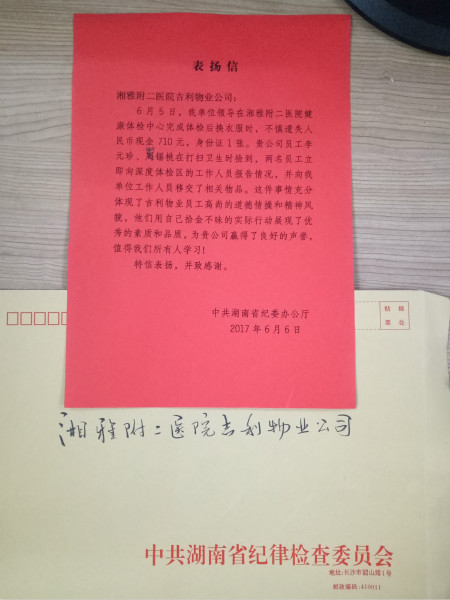 表扬信
湘雅附二医院吉利物业公司：
6月5日，我单位领导在湘雅附二医院健
康体检中心完成体检后换衣服时，不慎遗失人
民币现金710元，身份证1张。贵公司员工李
元珍、周锡桃在打扫卫生时捡到，两名员工立
即向深度体检区的工作人员报告情况，并向我
单位工作人员移交了相关物品。这件事情充分
体现了吉利物业员工高尚的道德情操和精神风
貌，他们用自己拾金不昧的实际行动展现了优
秀的素质和品质，为贵公司赢得了良好的声誉，
值得我们所有人学习！
特信表扬，并致感谢。
中共湖南省纪委办公厅
2017年6月6日
贴邮
票处
湘雅附二医院吉利物业公司
中共湖南省纪律检查委员会
地址:长沙市韶山路1号
邮政编码:410011